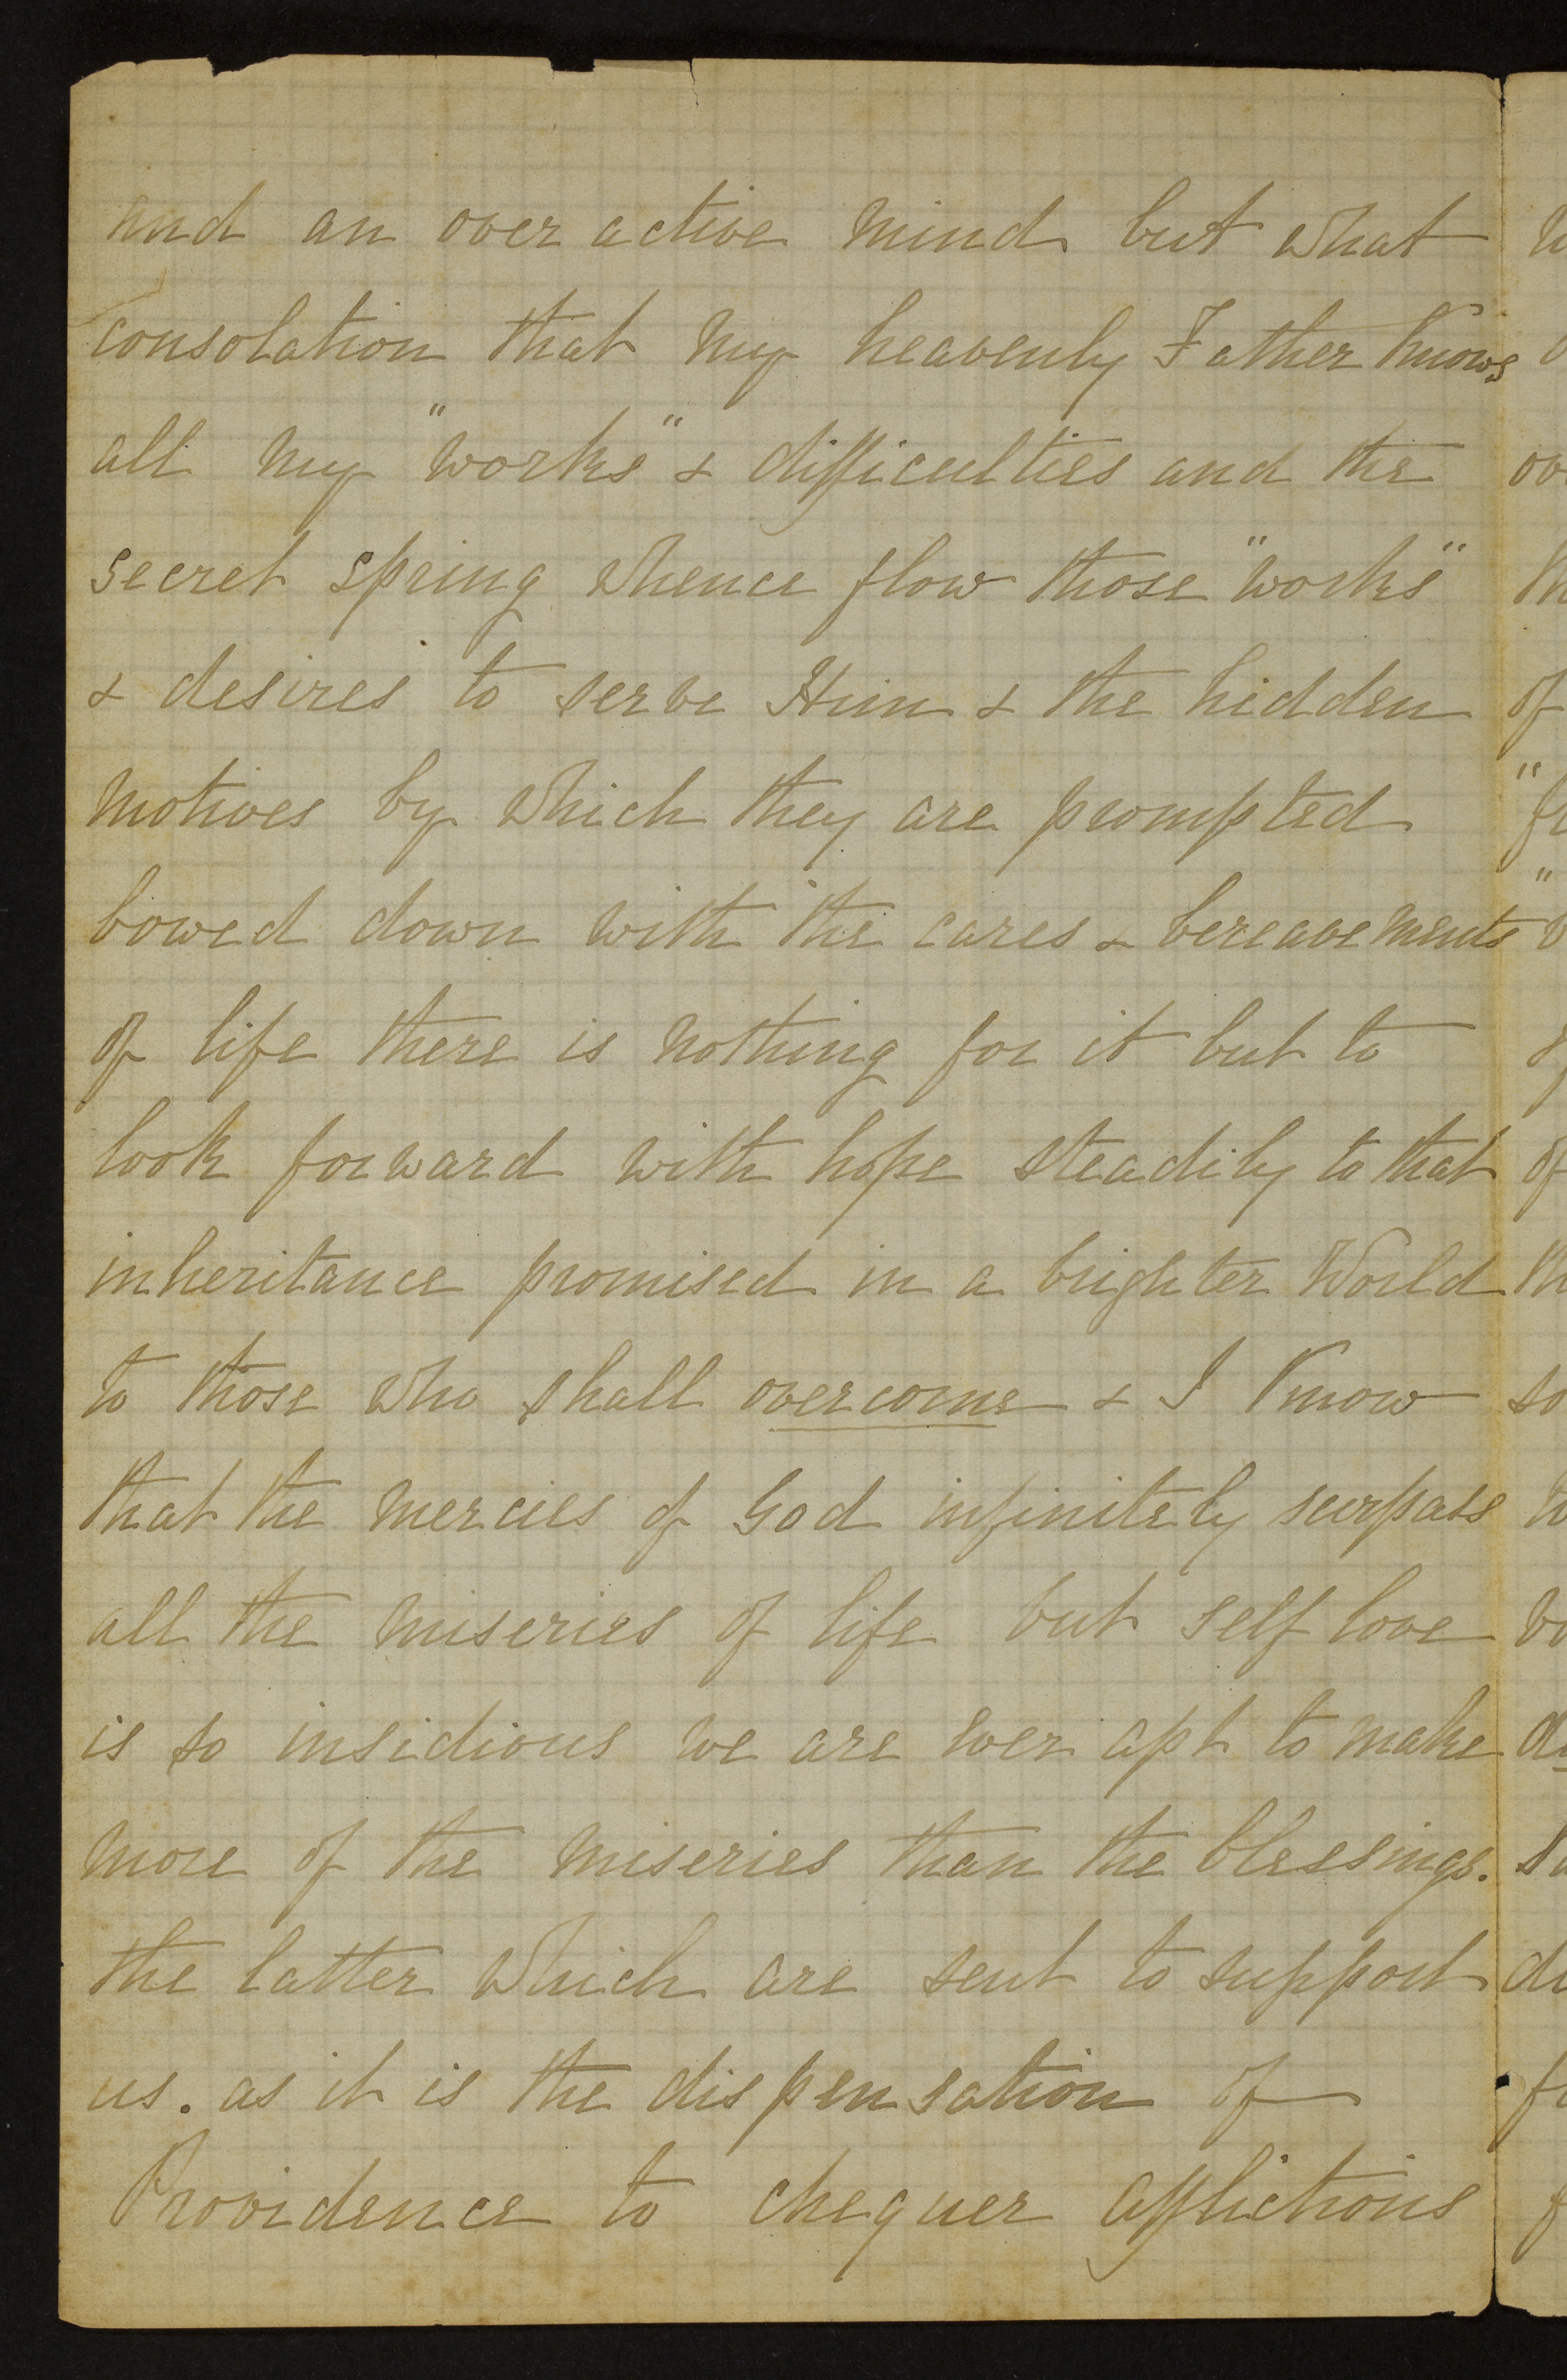 and an over active mind but what
consolation that my heavenly Father knows
all my "works" & difficulties and the
secret spring whence flow those "works"
& desires to serve Him & the hidden
motives by which they are prompted
bowed down with the cares & bereavements
of life there is nothing for it but to
look forward with hope steadily to that
inheritance promised in a brighter World
to those who shall overcome & I know
that the mercies of God infinitely surpass
all the miseries of life but self love
is so insidious we are ever apt to make
more of the miseries than the blessings.
the latter which are sent to support
us. as it is the dispensation of
Providence to chequer afflictions